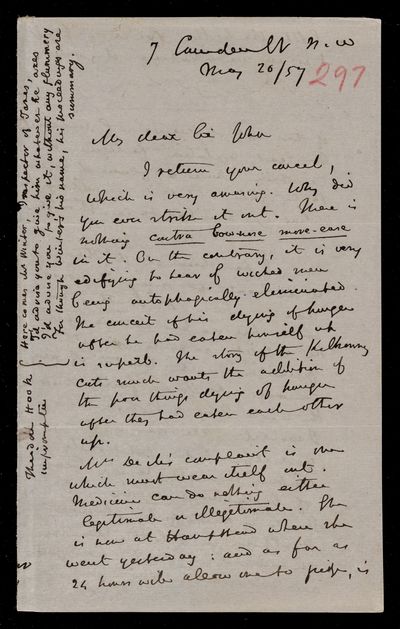 7 Camden St N.W
May 20/57
297
My dear Sir John
I return your cancel,
which is very amusing. Why did
you ever strike it out. There is
nothing contra bownose more-ease
in it. On the contrary, it is very
edifying to hear of wicked men
being autophagically eliminated.
The conceit of his dying of hunger
after he had eaten himself up
is superb. The story of the Kilkenny
cats much wants the addition of
the poor things dying of hunger
after they had eaten each other
up.
Mrs De M's complaint is one
which must wear itself out.
Medicine can do nothing either
legitimate or illegitimate. She
is now at Hampstead where she
went yesterday: and as far as
24 hours will allow one to judge, is
Theodore Hook
impromptu
Here comes Mr Winter, Inspector of Taxes,
I'd advise you to give him whatever he axes
I'd advise you to give it, without any flummery
For though Winter's his name, his proceedings are
summary.